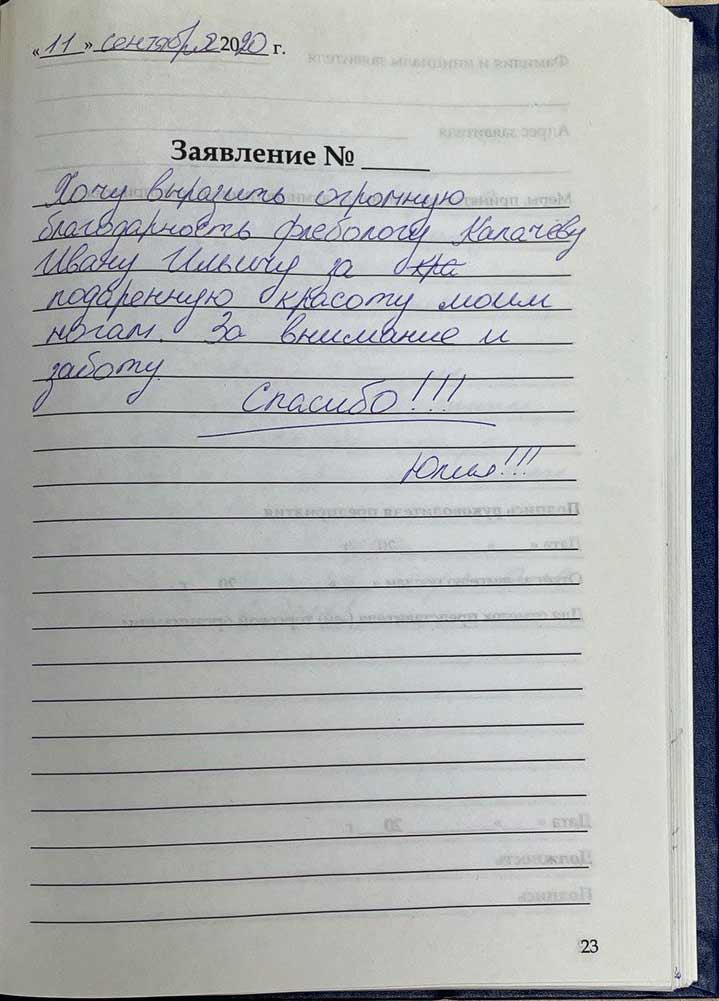 « 11 » сентября 2020 г.
Заявление № ____
Хочу выразить огромную
благодарность флебологу Калачёву
Ивану Ильичу за кра
подаренную красоту моим
ногам. За внимание и
заботу.
Спасибо!!!
Юлия!!!
23